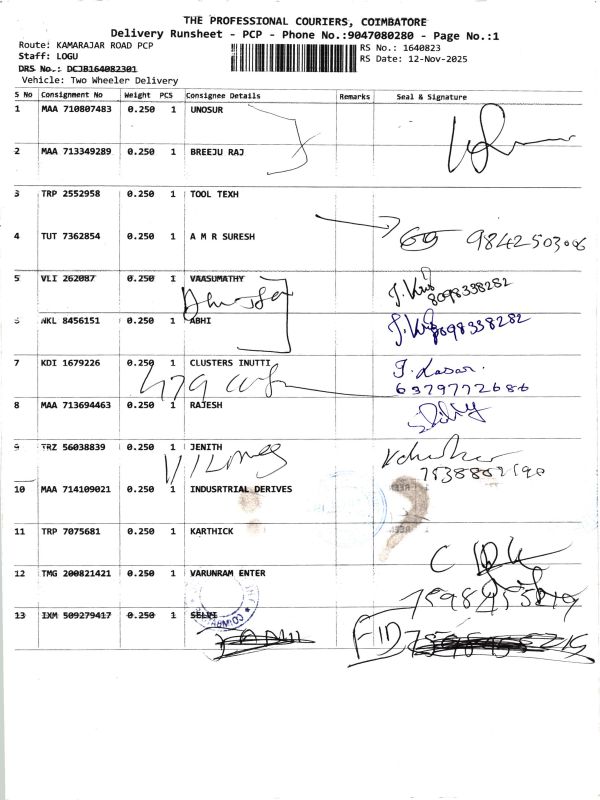 THE PROFESSIONAL COURIERS, COIMBATORE
Delivery Runsheet - PCP - Phone No.:9047080280 - Page No.:1
Route: KAMARAJAR ROAD PCP
Staff: LOGU
DRS No.: DCJB164082301
Vehicle: Two Wheeler Delivery
RS No.: 1640823
RS Date: 12-Nov-2025
S No Consignment No Weight PCS Consignee Details Remarks Seal & Signature
1 MAA 710807483 0.250 1 UNOSUR
2 MAA 713349289 0.250 1 BREEJU RAJ
3 TRP 2552958 0.250 1 TOOL TEXH
4 TUT 7362854 0.250 1 A M R SURESH
5 VLI 262087 0.250 1 VAASUMATHY
8098338282
6 NKL 8456151 0.250 1 ABHI
8098338282
7 KDI 1679226 0.250 1 CLUSTERS INUTTI
6379772686
8 MAA 713694463 0.250 1 RAJESH
9 TRZ 56038839 0.250 1 JENITH
10 MAA 714109021 0.250 1 INDUSRTRIAL DERIVES
11 TRP 7075681 0.250 1 KARTHICK
12 TMG 200821421 0.250 1 VARUNRAM ENTER
13 IXM 509279417 0.250 1 SELVI